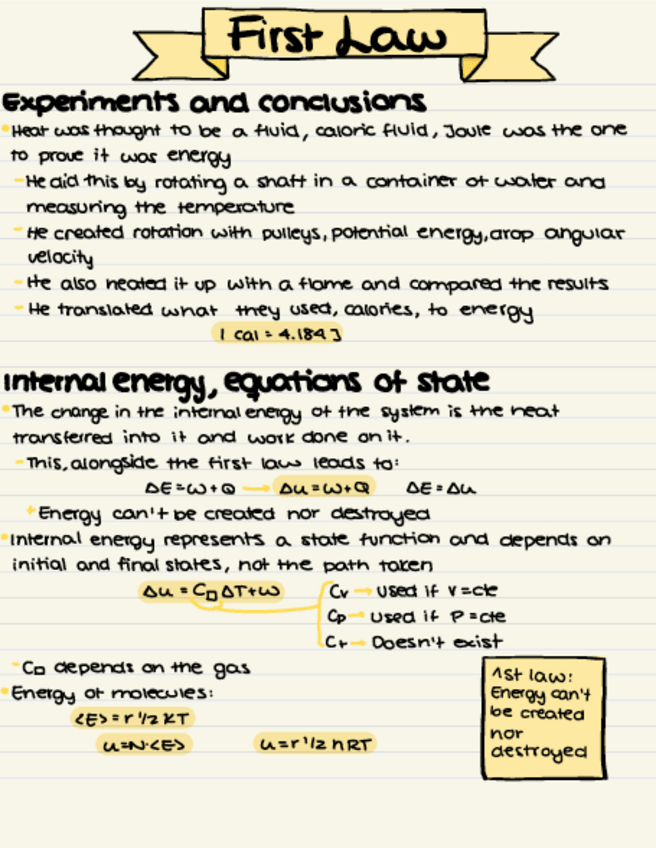 First Law
Experiments and conclusions
Heat was thought to be a fluid, caloric fluid, Joule was the one
to prove it was energy
-He did this by rotating a shaft in a container of water and
measuring the temperature
-He created rotation with pulleys, potential energy, drop angular
velocity
-He also heated it up with a flame and compared the results
-He translated what they used, calories, to energy
1 cal = 4.184 J
Internal energy, equations of state
The change in the internal energy of the system is the heat
transferred into it and work done on it.
-This, alongside the first law leads to:
ΔE=W+Q → Δu=W+Q ΔE=Δu
Energy can't be created nor destroyed
Internal energy represents a state function and depends on
initial and final states, not the path taken
Δu = C□ΔT+W
Cv → used if V=cte
Cp → used if P=cte
CT → Doesn't exist
-C□ depends on the gas
Energy of molecules:
<E>=r 1/2 KT
u=N·<E> u=r 1/2 nRT
1st law:
Energy can't
be created
nor
destroyed